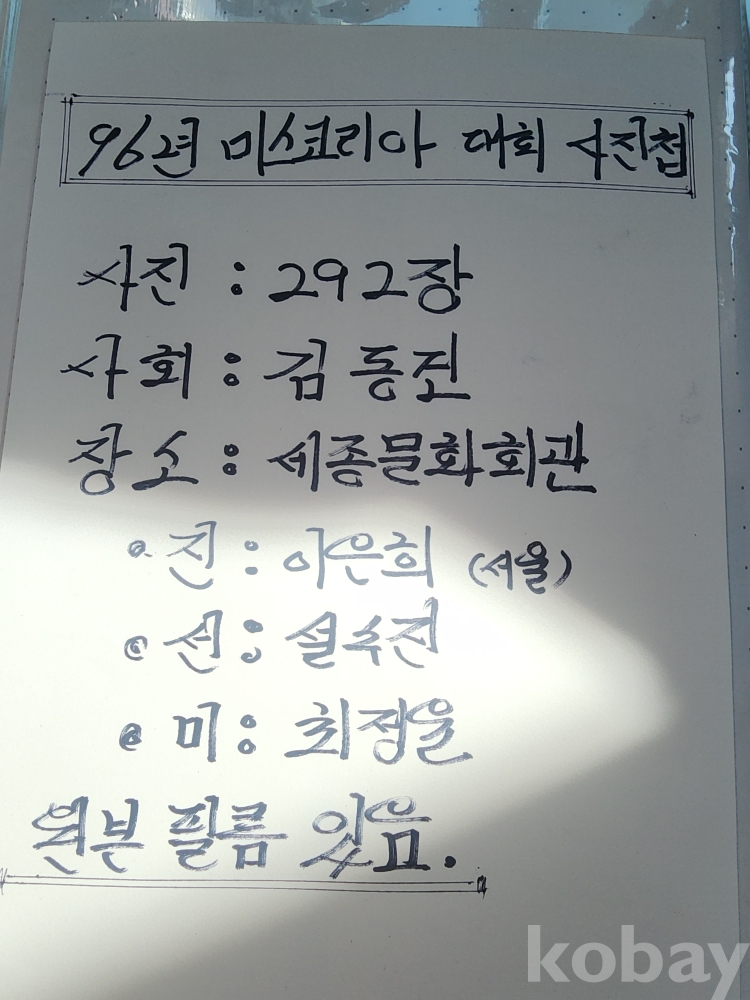 96년 미스코리아 대회 사진첩
사진 : 292장
사회 : 김동진
장소 : 세종문화회관
• 진 : 이은희 (서울)
• 선 : 설수진
• 미 : 최정윤
원본 필름 있음.
kobay